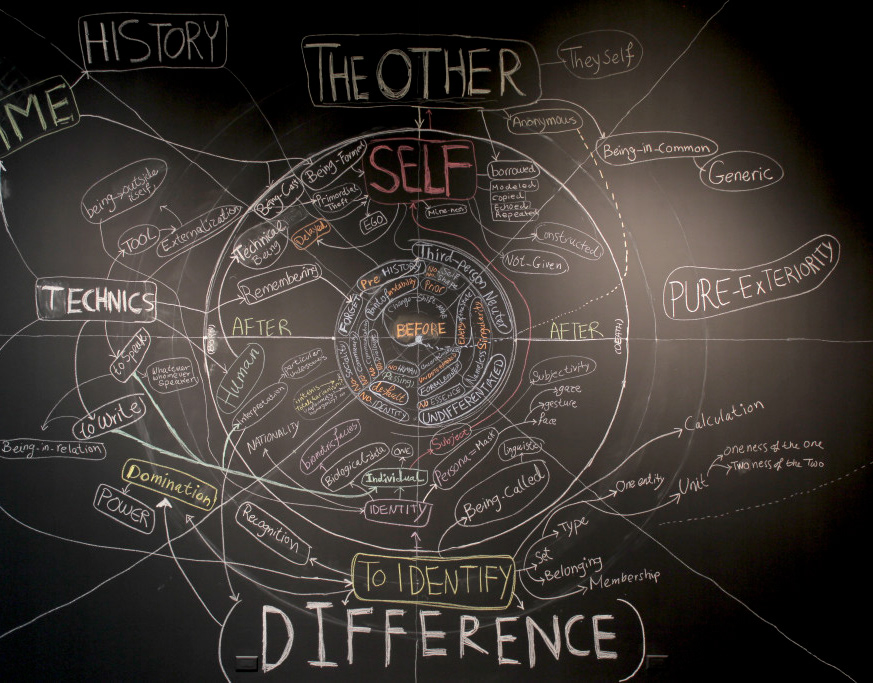 HISTORY
THE OTHER
TheySelf
IME
Anonymous
Being-in-Common
Generic
SELF
Being-Formed
Being-Cast
Primordial
Theft
EGO
Mine-ness
borrowed
Modeled
Copied
Echoed
Repeated
Constructed
Not-Given
being-outside
itself
TOOL
Externalization
Technical
Being
Delayed
Remembering
TECHNICS
PURE-EXTERIORITY
Third-person Neuter
Pre HISTORY
Prior
FORGET
Singularity
Nameless
BEFORE
AFTER
AFTER
(BIRTH)
(DEATH)
NO HUMAN
default
NO ESSENCE
NO IDENTITY
UNDIFFERENTIATED
to Speak
Whatever
whomever
Speaker
Human
particular
interpretation
NATIONALITY
to Write
Being-in-relation
biometric facies
Biological data
ONE
Individual
IDENTITY
Subject
Persona = Mask
linguistic
Being-Called
Subjectivity
gaze
gesture
face
Calculation
Oneness of the One
Twoness of the Two
Unit
One entity
Domination
POWER
Recognition
Type
Set
Belonging
Membership
TO IDENTIFY
(DIFFERENCE)